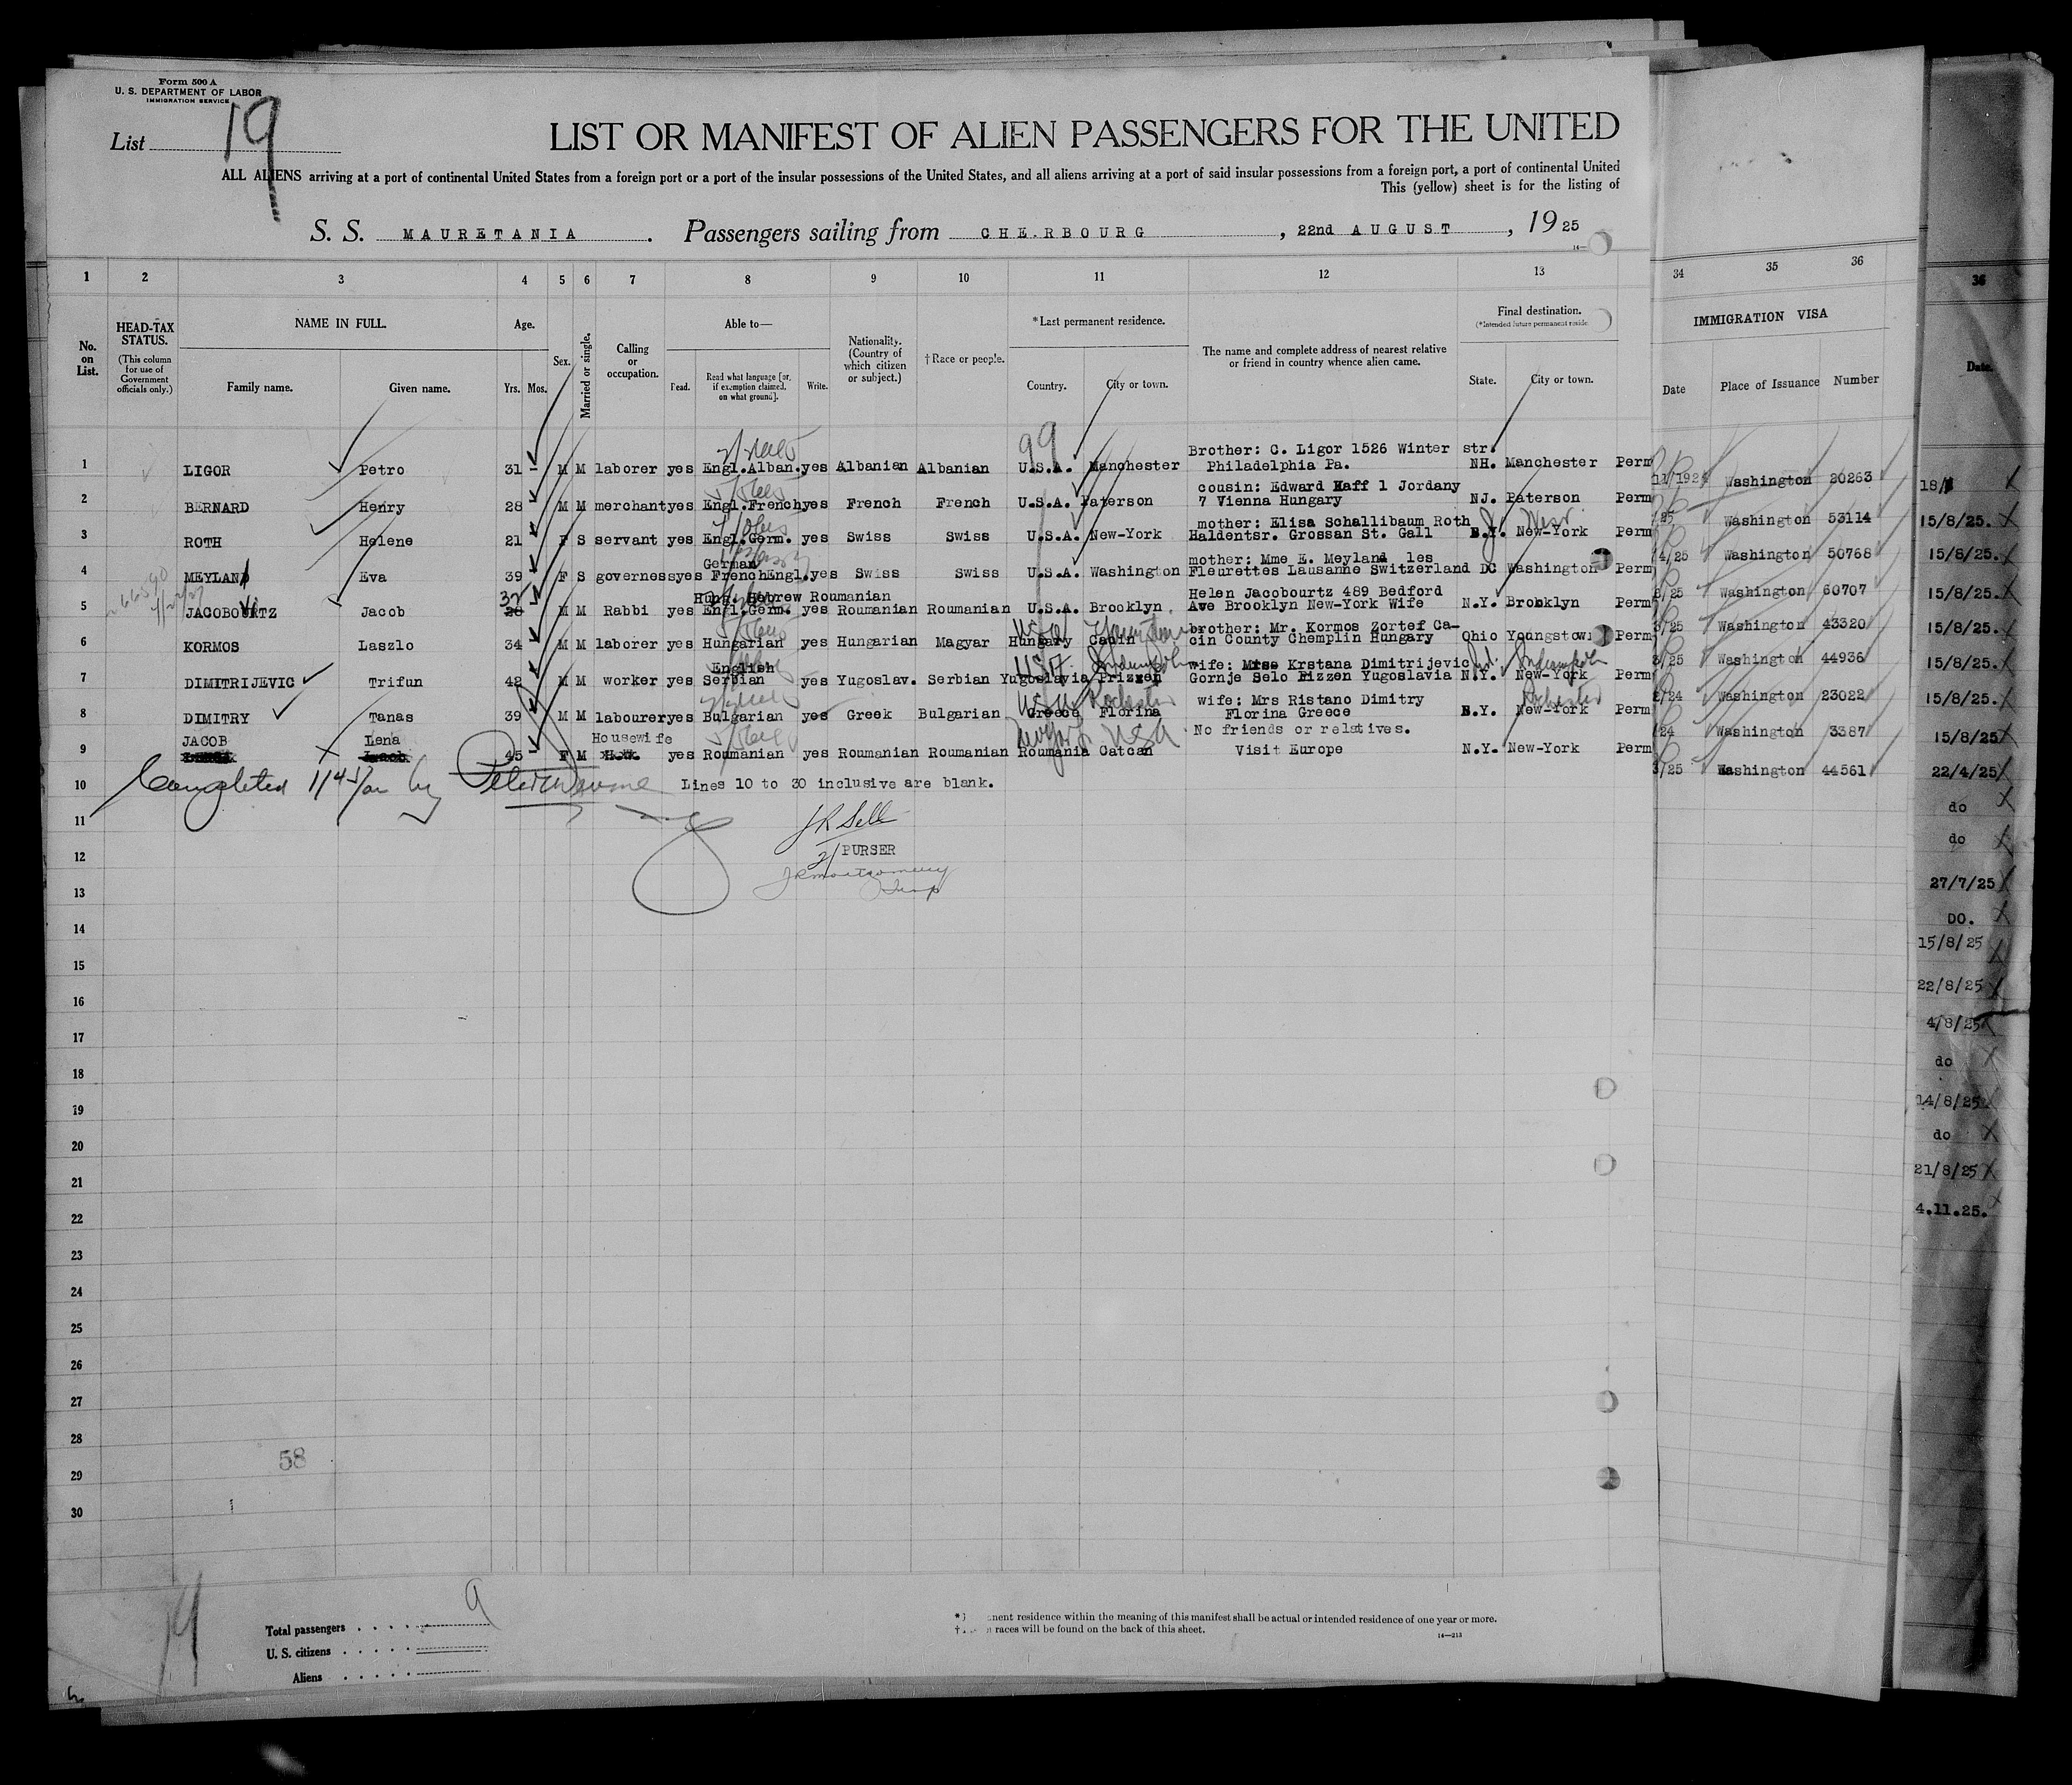 Form 500 A
U. S. DEPARTMENT OF LABOR
IMMIGRATION SERVICE
List 19
LIST OR MANIFEST OF ALIEN PASSENGERS FOR THE UNITED
ALL ALIENS arriving at a port of continental United States from a foreign port or a port of the insular possessions of the United States, and all aliens arriving at a port of said insular possessions from a foreign port, a port of continental United
This (yellow) sheet is for the listing of
S. S. MAURETANIA. Passengers sailing from CHERBOURG, 22nd AUGUST, 1925
1 2 3 4 5 6 7 8 9 10 11 12 13 34 35 36 36
No. on List.
HEAD-TAX STATUS.
(This column for use of Government officials only.)
NAME IN FULL.
Family name. Given name.
Age.
Yrs. Mos.
Sex.
Married or single.
Calling or occupation.
Able to—
Read.
Read what language [or, if exemption claimed, on what ground].
Write.
Nationality. (Country of which citizen or subject.)
†Race or people.
*Last permanent residence.
Country. City or town.
The name and complete address of nearest relative or friend in country whence alien came.
Final destination.
(*Intended future permanent reside
State. City or town.
IMMIGRATION VISA
Date Place of Issuance Number
Date.
99
Brother: C. Ligor 1526 Winter str.
1 LIGOR Petro 31 - M M laborer yes Engl.Alban. yes Albanian Albanian U.S.A. Manchester Philadelphia Pa. NH. Manchester Perm 11/1924 Washington 20263
cousin: Edward Haff 1 Jordany
2 BERNARD Henry 28 M M merchant yes Engl.French yes French French U.S.A. Paterson 7 Vienna Hungary NJ. Paterson Perm /25 Washington 53114
mother: Elisa Schallibaum Roth
3 ROTH Helene 21 F S servant yes Engl.Germ. yes Swiss Swiss U.S.A. New-York Haldentsr. Grossan St. Gall N.Y. New-York Perm 4/25 Washington 50768
German mother: Mme E. Meyland les
4 MEYLAND Eva 39 F S governess yes French Engl. yes Swiss Swiss U.S.A. Washington Fleurettes Lausanne Switzerland DC Washington Perm /25 Washington 60707
32 Hung. Hebrew Roumanian Helen Jacobourtz 489 Bedford
5 JACOBOURTZ Jacob 28 M M Rabbi yes Engl.Germ. yes Roumanian Roumanian U.S.A. Brooklyn. Ave Brooklyn New-York Wife N.Y. Brooklyn Perm /25 Washington 43320
USA brother: Mr. Kormos Zortef Ca-
6 KORMOS Laszlo 34 M M laborer yes Hungarian yes Hungarian Magyar Hungary Cacin cin County Chemplin Hungary Ohio Youngstown Perm /25 Washington 44936
English USA wife: Mrse Krstana Dimitrijevic
7 DIMITRIJEVIC Trifun 42 M M worker yes Serbian yes Yugoslav. Serbian Yugoslavia Prizzen Gornje Selo Pizzen Yugoslavia N.Y. New-York Perm /24 Washington 23022
USA Rochester wife: Mrs Ristano Dimitry Rochester
8 DIMITRY Tanas 39 M M labourer yes Bulgarian yes Greek Bulgarian Greece Florina Florina Greece N.Y. New-York Perm /24 Washington 3387
JACOB Lena Housewife No friends or relatives.
9 45 F M H.W. yes Roumanian yes Roumanian Roumanian Roumania Catcan Visit Europe N.Y. New-York Perm 3/25 Washington 44561
10 Completed 1145/am by Lines 10 to 30 inclusive are blank.
11
JR Sell
12
2/PURSER
13
JR Montgomery
14
15
16
17
18
19
20
21
22
23
24
25
26
27
28
58
29
30
18/
15/8/25.
15/8/25.
15/8/25.
15/8/25.
15/8/25.
15/8/25.
15/8/25
22/4/25
do
do
27/7/25
DO.
15/8/25
22/8/25
4/8/25
do
14/8/25
do
21/8/25
4.11.25.
19
Total passengers . . . . . 9
U. S. citizens . . . . .
Aliens . . . . .
nent residence within the meaning of this manifest shall be actual or intended residence of one year or more.
races will be found on the back of this sheet.
14—213